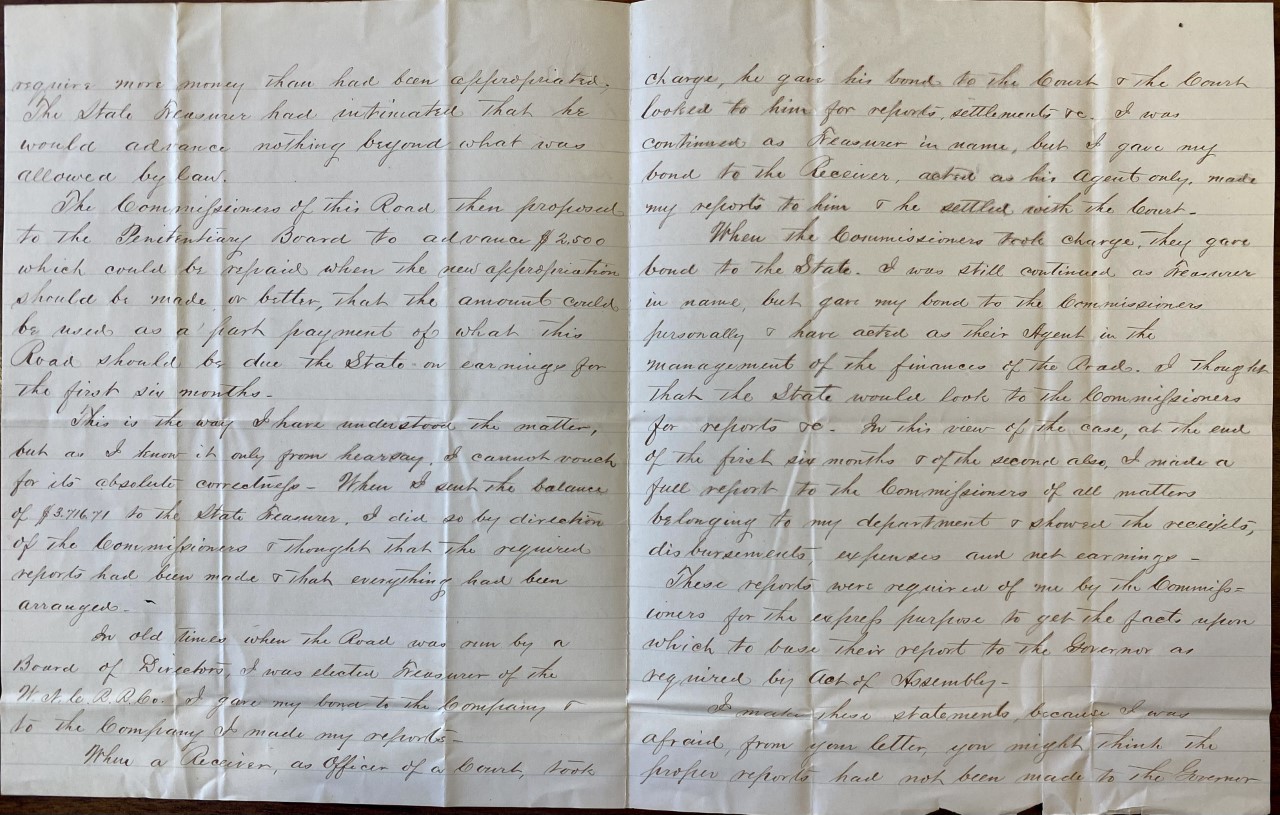 require more money than had been appropriated.
The State Treasurer had intimated that he
would advance nothing beyond what was
allowed by law.
The Commissioners of this Road then proposed
to the Penitentiary Board to advance $2,500
which could be repaid when the new appropriation
should be made or better, that the amount could
be used as a part payment of what this
Road should be due the State on earnings for
the first six months-
This is the way I have understood the matter,
but as I know it only from hearsay, I cannot vouch
for its absolute correctness- When I sent the balance
of $3.716.71 to the State Treasurer, I did so by direction
of the Commissioners & thought that the required
reports had been made & that everything had been
arranged-
In old times when the Road was run by a
Board of Directors, I was elected Treasurer of the
W.N.C.R.R.Co. I gave my bond to the Company &
to the Company I made my reports-
When a Receiver, as Officer of a Court, took
charge, he gave his bond to the Court & the Court
looked to him for reports, settlements &c. I was
continued as Treasurer in name, but I gave my
bond to the Receiver, acted as his Agent only, made
my reports to him & he settled with the Court-
When the Commissioners took charge, they gave
bond to the State. I was still continued as Treasurer
in name, but gave my bond to the Commissioners
personally & have acted as their Agent in the
management of the finances of the Road. I thought
that the State would look to the Commissioners
for reports &c- In this view of the case, at the end
of the first six months & of the second also, I made a
full report to the Commissioners of all matters
belonging to my department & showed the receipts,
disbursements, expenses and net earnings-
These reports were required of me by the Commiss=
ioners for the express purpose to get the facts upon
which to base their report to the Governor as
required by Act of Assembly-
I make these statements, because I was
afraid, from your letter, you might think the
proper reports had not been made to the Governor